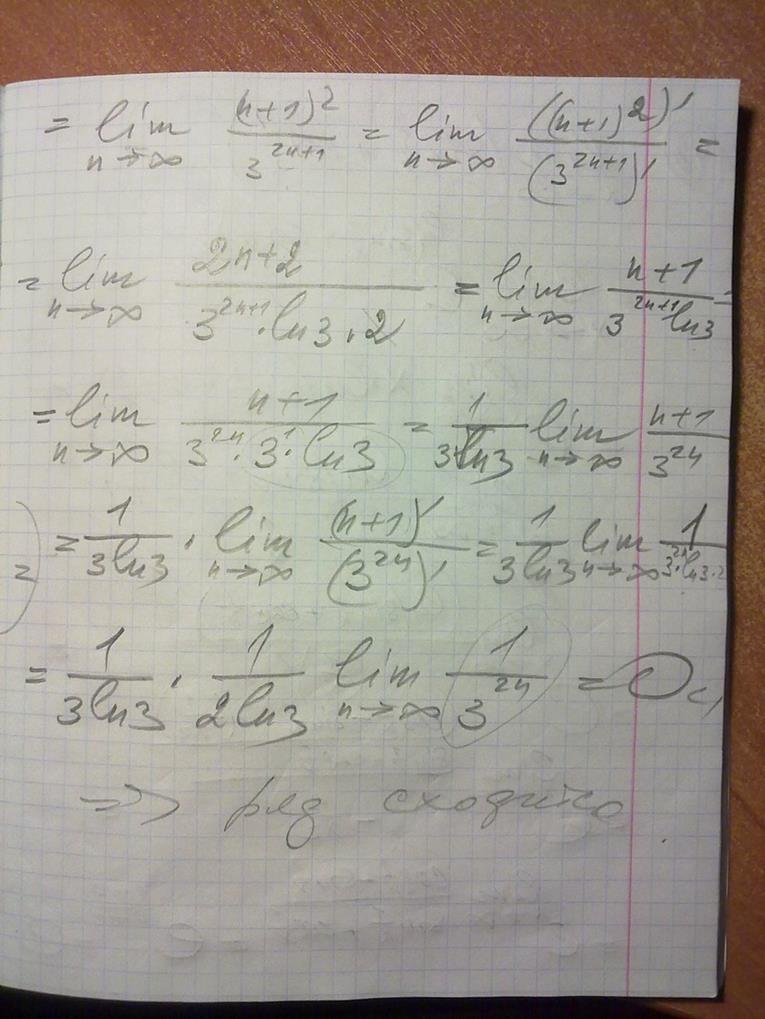 = lim n→∞ (n+1)² / 3^(2n+1) = lim n→∞ ((n+1)²)' / (3^(2n+1))' =
= lim n→∞ (2n+2) / (3^(2n+1) · ln3 · 2) = lim n→∞ (n+1) / (3^(2n+1) ln3) =
= lim n→∞ (n+1) / (3^(2n) · 3^1 · ln3) = 1/(3ln3) lim n→∞ (n+1) / 3^(2n)
= = 1/(3ln3) · lim n→∞ (n+1)' / (3^(2n))' = 1/(3ln3) lim n→∞ 1 / (3^(2n) · ln3 · 2)
= 1/(3ln3) · 1/(2ln3) lim n→∞ 1 / 3^(2n) = 0 < 1
=> ряд сходится